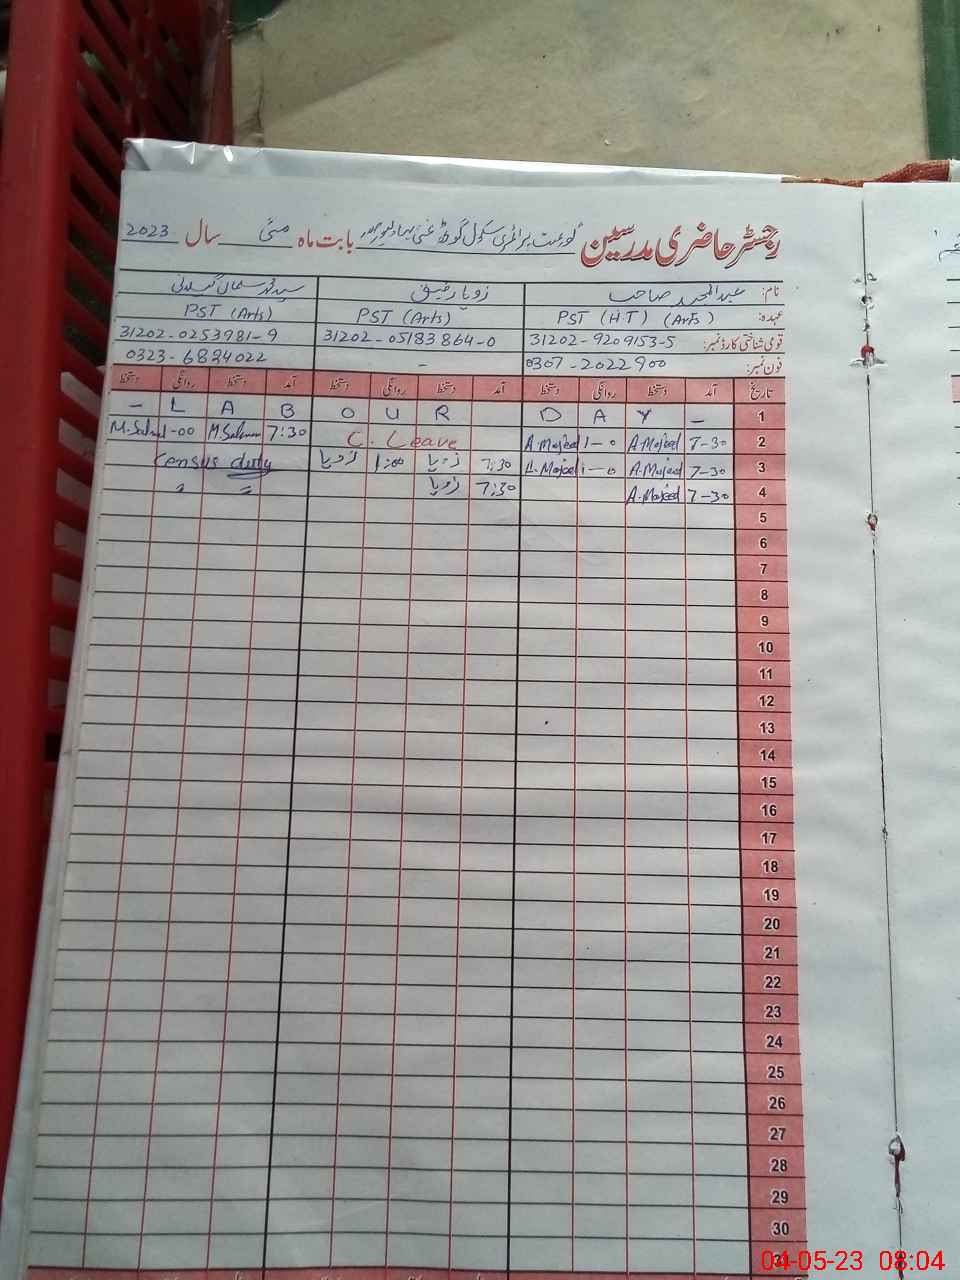 رجسٹر حاضری مدرسین گورنمنٹ پرائمری سکول گوٹھ غنی بہاولپور بابت ماہ مئی سال 2023
نام: عبدالمجید صاحب زوبا رفیق سید محمد سلمان گیلانی
عہدہ: PST (H.T) (Arts) PST (Arts) PST (Arts)
قومی شناختی کارڈ نمبر: 31202-9209153-5 31202-05183864-0 31202-0253981-9
فون نمبر: 0307-2022900 - 0323-6824022
تاریخ آمد دستخط روانگی دستخط آمد دستخط روانگی دستخط آمد دستخط روانگی دستخط
- L A B O U R D A Y - 1
M.Salman 1-00 M.Salman 7:30 C. Leave A.Majeed 1-0 A.Majeed 7-30 2
Census duty زوبا 1:00 زوبا 7:30 A.Majeed 1-0 A.Majeed 7-30 3
" " زوبا 7:30 A.Majeed 7-30 4
5
6
7
8
9
10
11
12
13
14
15
16
17
18
19
20
21
22
23
24
25
26
27
28
29
30
31
04-05-23 08:04